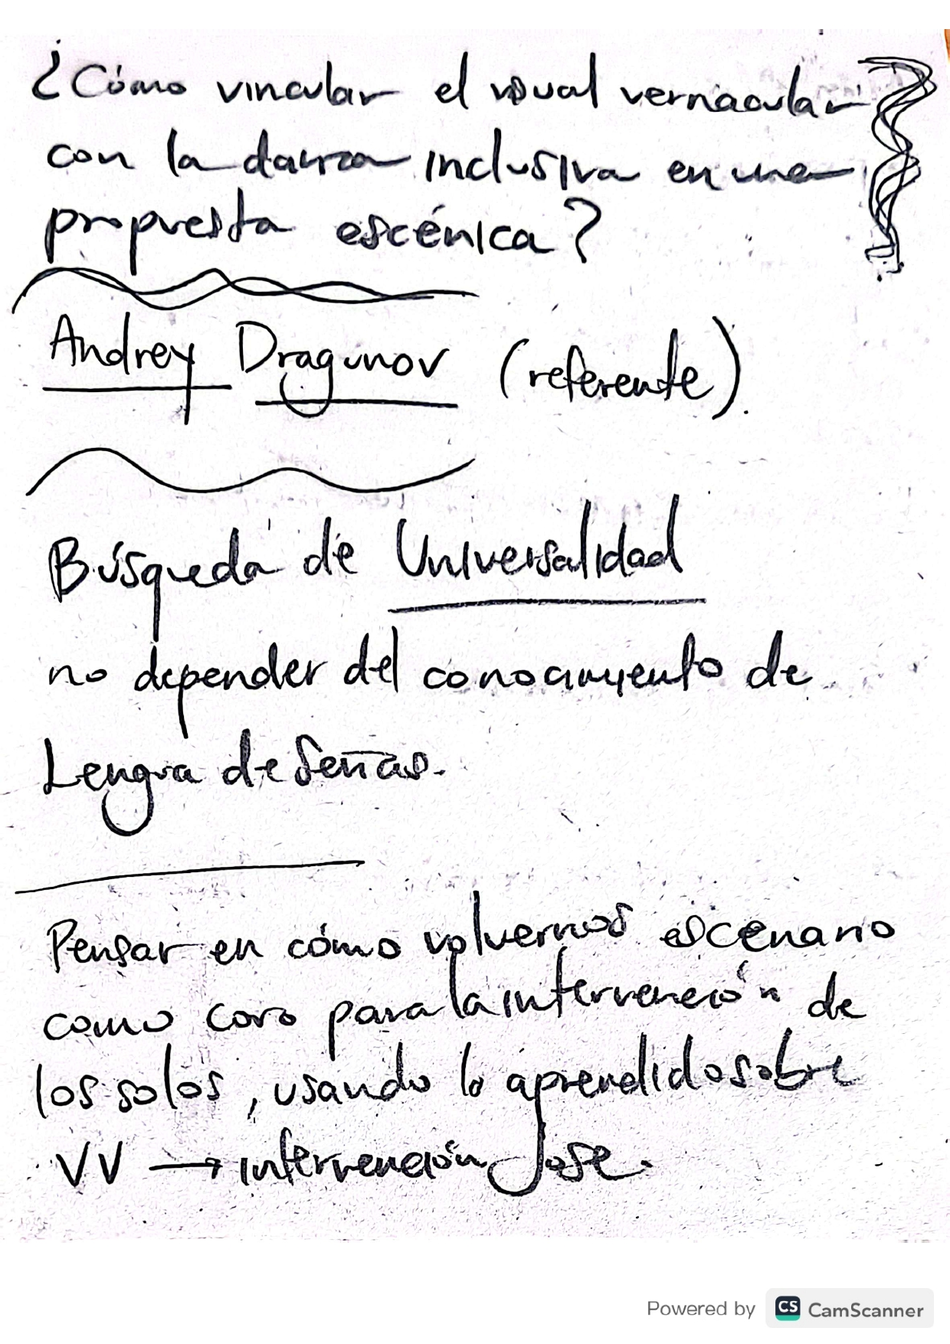 ¿Cómo vincular el visual vernacular
con la danza inclusiva en una
propuesta escénica?
Andrey Dragunov (referente).
Búsqueda de Universalidad
no depender del conocimiento de
Lengua de Señas.
Pensar en cómo volvernos escenario
como coro para la intervención de
los solos, usando lo aprendido sobre
VV → intervención Jose.
Powered by CS CamScanner